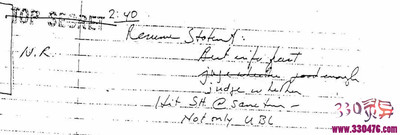 TOP SECRET
2:40
Resume Statement
N.R.
Best info fast
good enough
judge whether
Hit SH @ same time -
Not only UBL
330号
www.330476.com